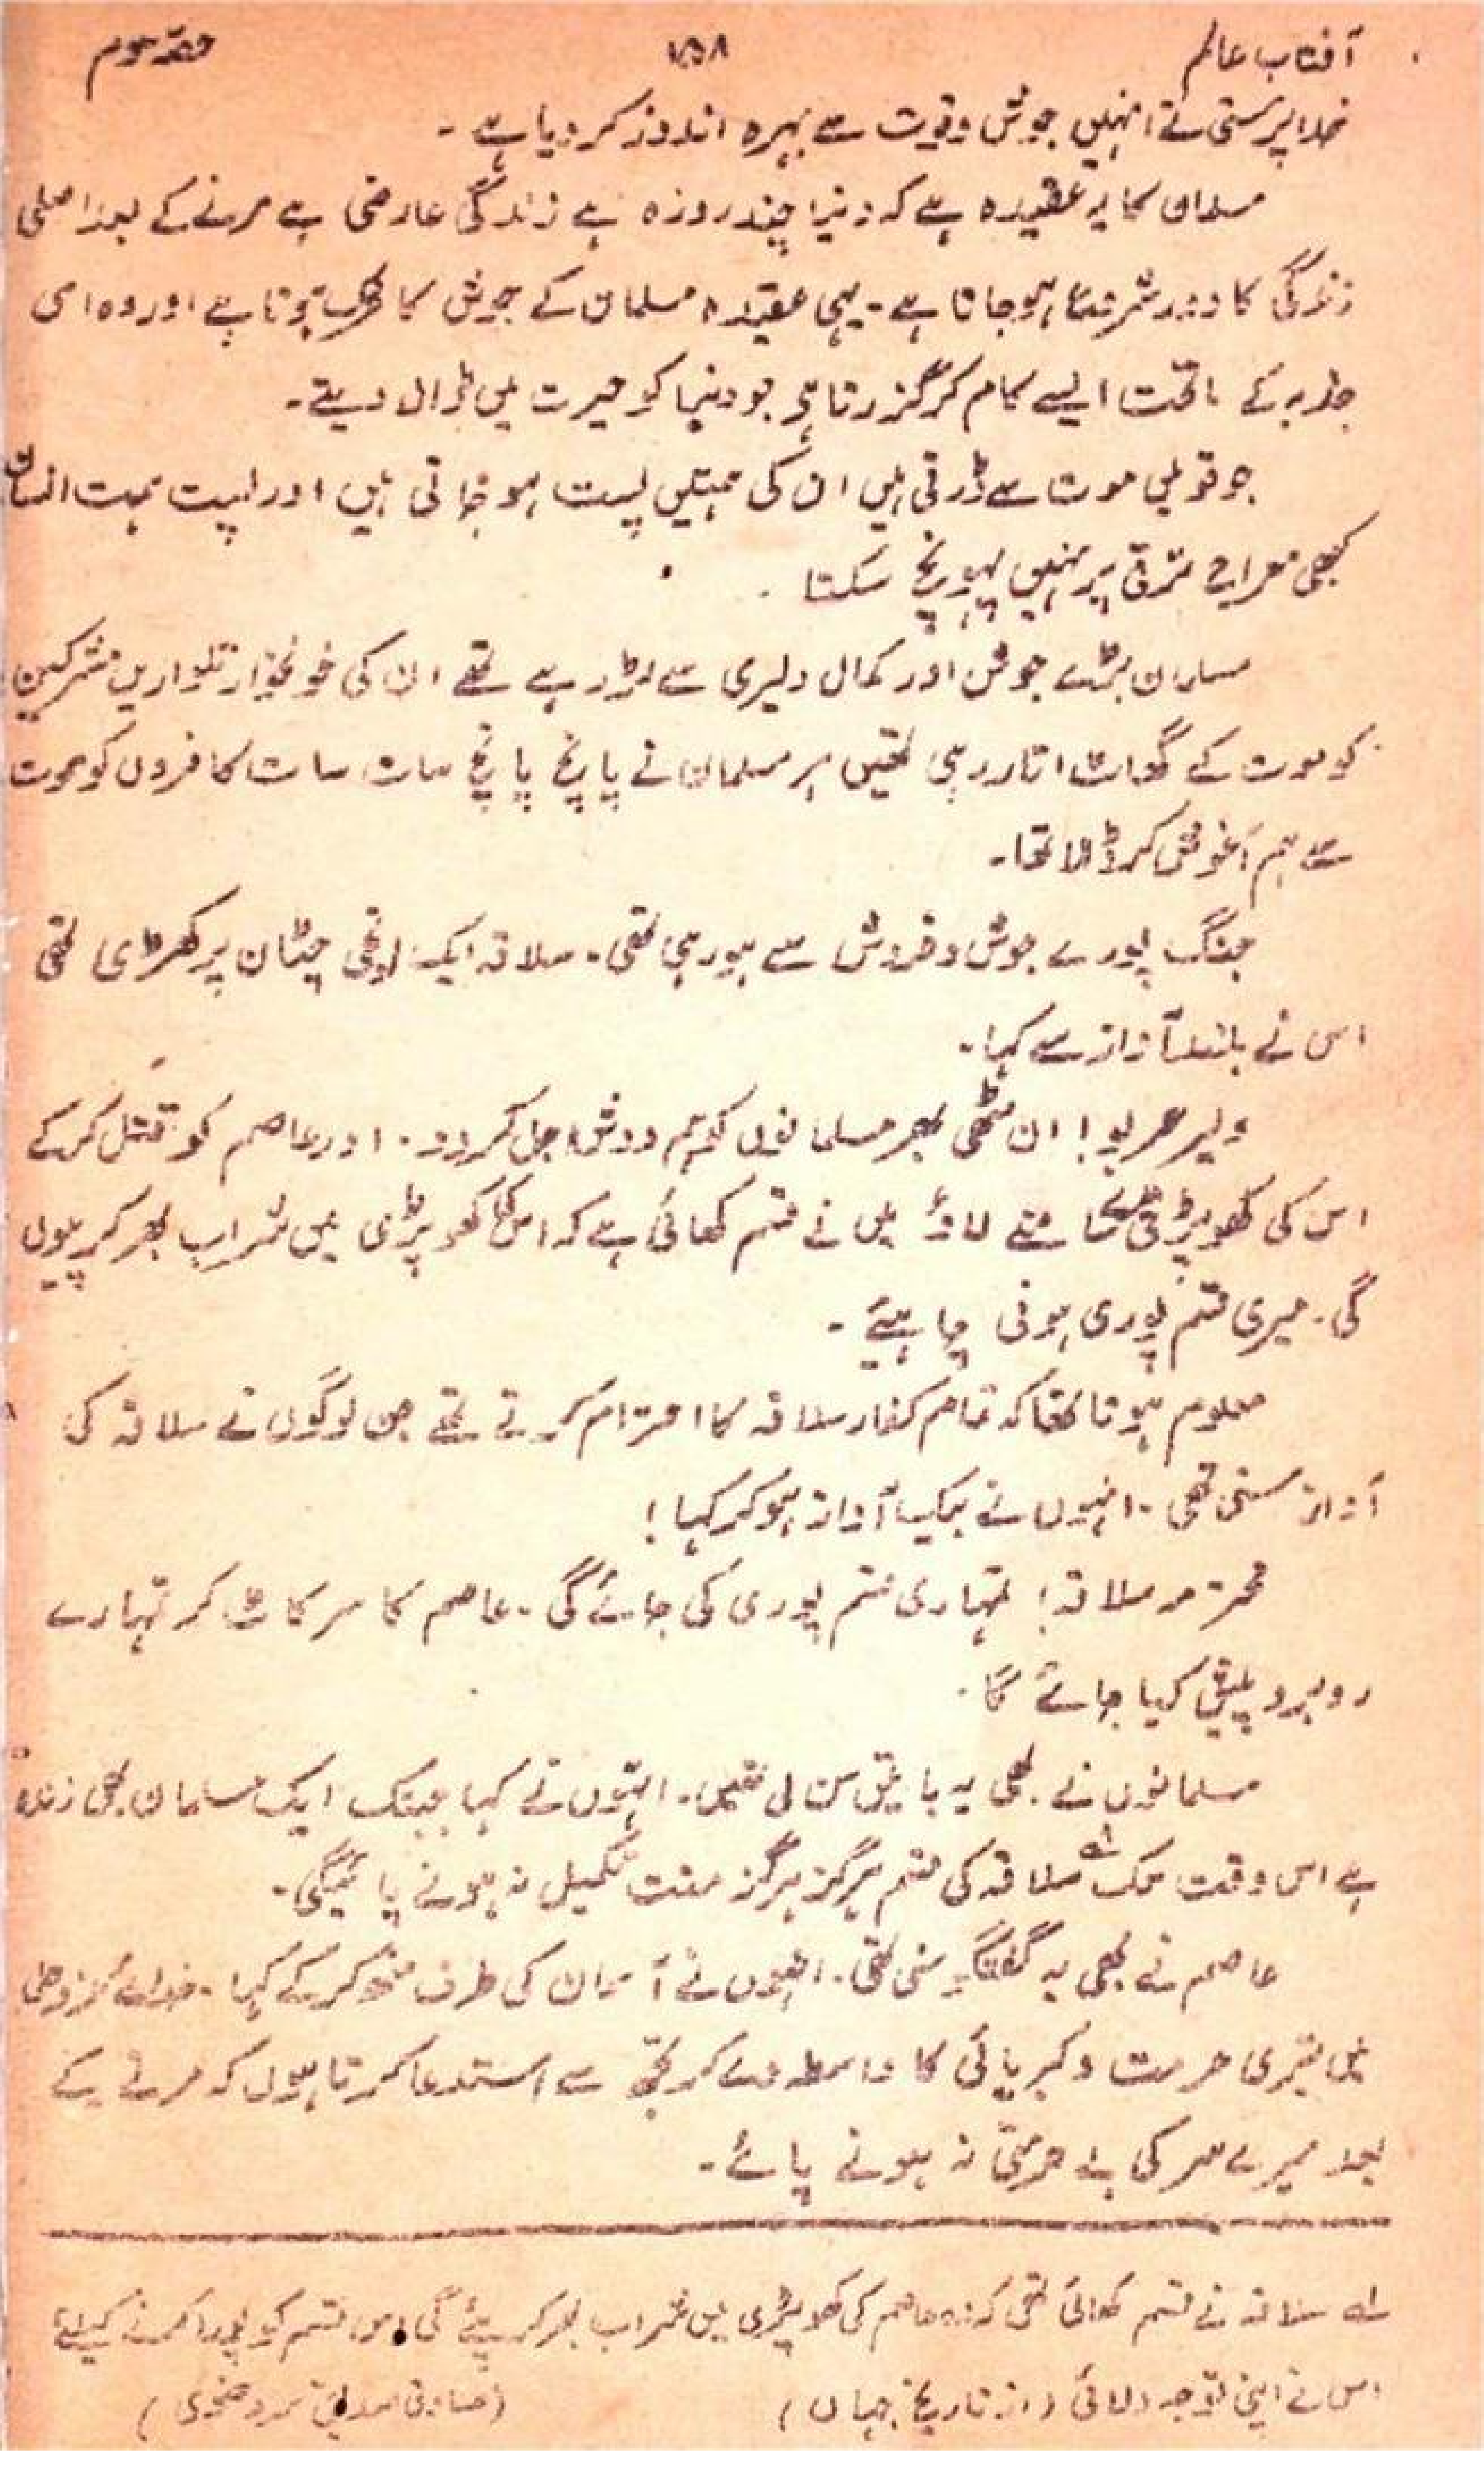 آفتاب عالم ۷۵۸ حصّہ سوم
خدا پرستی نے انہیں جوش وقوت سے بہرہ اندوز کر دیا ہے -
مسلمان کا یہ عقیدہ ہے کہ دنیا چند روزہ ہے زندگی عارضی ہے مرنے کے بعد اصلی
زندگی کا دور شروع ہو جاتا ہے - یہی عقیدہ مسلمان کے جوش کا محرک ہوتا ہے اور وہ اسی
جذبہ کے ماتحت ایسے کام کر گزرتا ہے جو دنیا کو حیرت میں ڈال دیتے -
جو قومیں موت سے ڈرتی ہیں ان کی ہمتیں پست ہو جاتی ہیں اور پست ہمت انسان
کبھی معراج ترقی پر نہیں پہونچ سکتا
مسلمان بڑے جوش اور کمال دلیری سے لڑ رہے تھے ان کی خونخوار تلواریں مشرکین
کو موت کے گھاٹ اتار رہی تھیں ہر مسلمان نے پانچ پانچ سات سات کافروں کو موت
سے ہم آغوش کر ڈالا تھا -
جنگ پورے جوش و خروش سے ہو رہی تھی - سلافہ ایک اونچی چٹان پر کھڑی تھی
اس نے بلند آواز سے کہا -
دلیر عربو! ان مٹھی بھر مسلمانوں کو ہم دوش اجل کر دو - اور عاصم کو قتل کر کے
اس کی کھوپڑی میرے سامنے لاؤ میں نے قسم کھائی ہے کہ اس کی کھوپڑی میں شراب بھر کر پیوں
گی - میری قسم پوری ہونی چاہئے -
معلوم ہوتا تھا کہ تمام کفار سلافہ کا احترام کرتے تھے جن لوگوں نے سلافہ کی
آواز سنی تھی - انہوں نے یک آواز ہو کر کہا !
محترمہ سلافہ! تمہاری قسم پوری کی جائے گی - عاصم کا سر کاٹ کر تمہارے
روبرو پیش کیا جائے گا -
مسلمانوں نے بھی یہ باتیں سن لی تھیں - انہوں نے کہا جبتک ایک مسلمان بھی زندہ
ہے اس وقت تک سلافہ کی قسم ہرگز ہرگز منت تکمیل نہ ہونے پائیگی -
عاصم نے بھی یہ گفتگو سنی تھی - انہوں نے آسمان کی طرف منہ کر کے کہا - خدائے عزوجل
میں تیری حرمت و کبریائی کا واسطہ دے کر تجھ سے استدعا کرتا ہوں کہ مرنے کے
بعد میرے سر کی بے حرمتی نہ ہونے پائے -
لہ سلافہ نے قسم کھائی تھی کہ وہ عاصم کی کھوپڑی میں شراب بھر کر پیئے گی اس قسم کو پورا کرنے کیلئے
اس نے اپنی توجہ دلائی (از تاریخ جہاں) (صادق صدیقی سردھنوی)